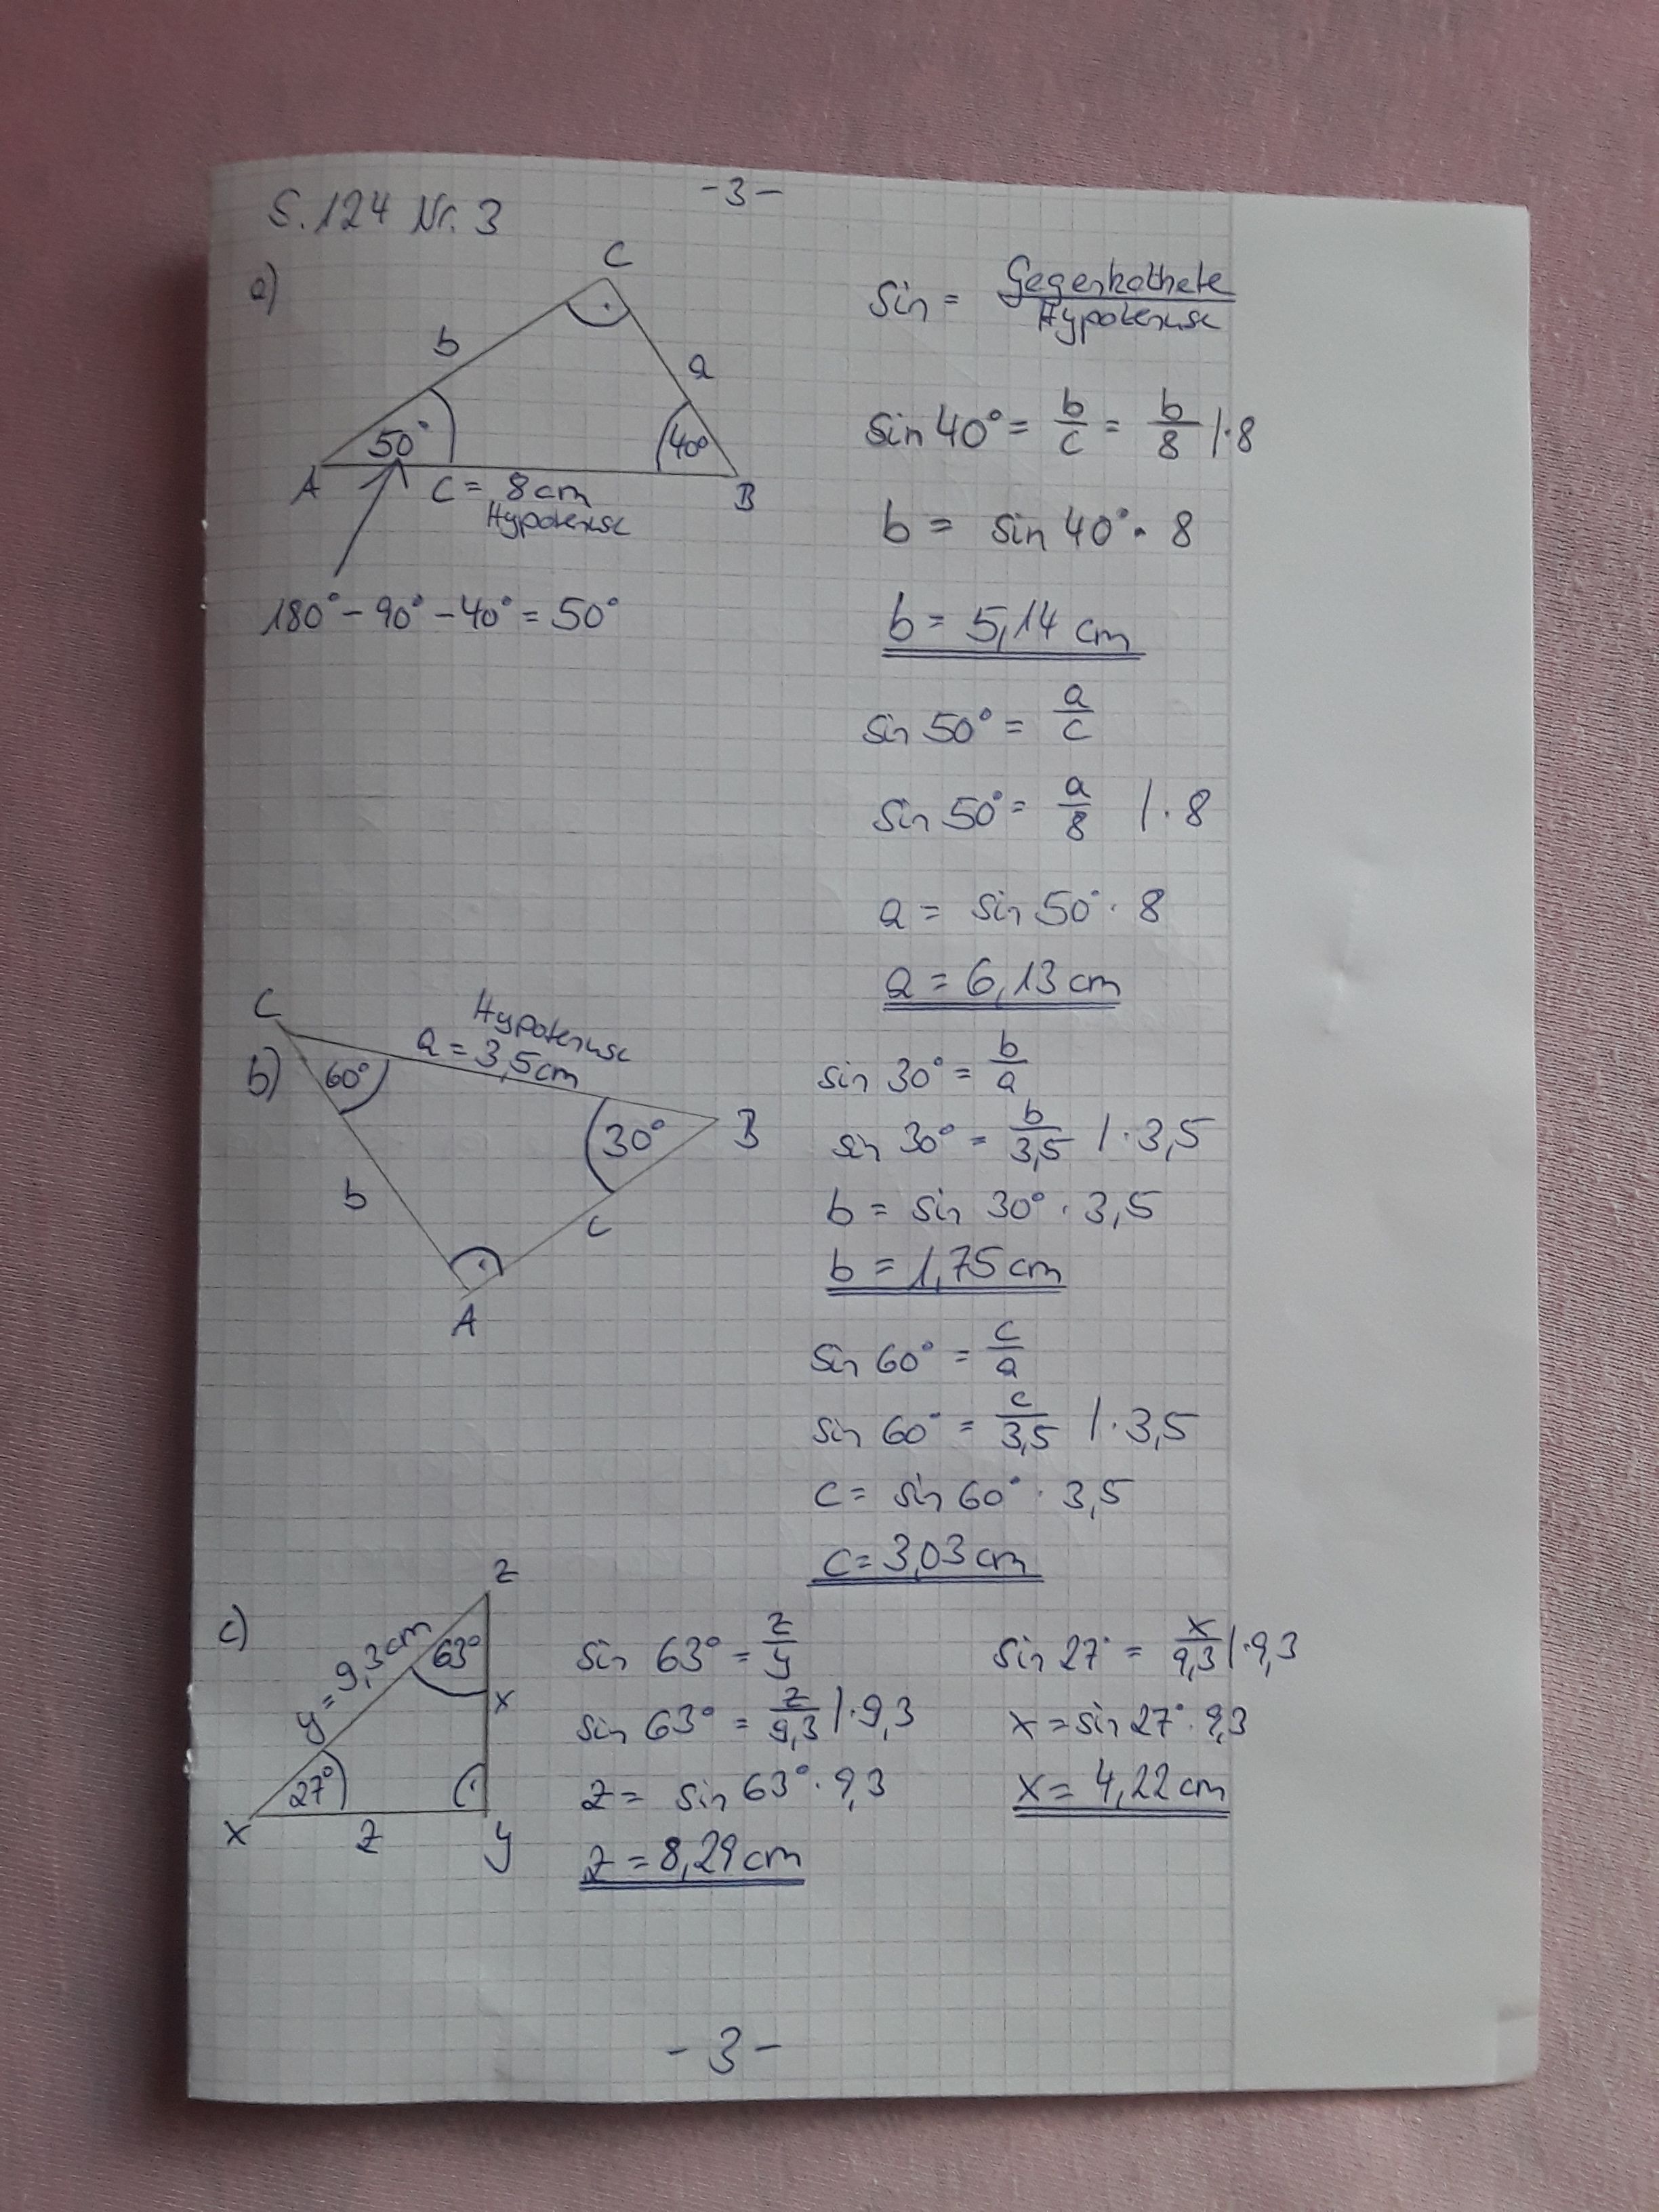 -3-
S. 124 Nr. 3
a)
C
b
a
50°
40°
A
c = 8 cm
B
Hypotenuse
180° - 90° - 40° = 50°
sin = Gegenkathete / Hypotenuse
sin 40° = b/c = b/8 | · 8
b = sin 40° · 8
b = 5,14 cm
sin 50° = a/c
sin 50° = a/8 | · 8
a = sin 50° · 8
a = 6,13 cm
b)
C
Hypotenuse
a = 3,5 cm
60°
30°
B
b
c
A
sin 30° = b/a
sin 30° = b/3,5 | · 3,5
b = sin 30° · 3,5
b = 1,75 cm
sin 60° = c/a
sin 60° = c/3,5 | · 3,5
c = sin 60° · 3,5
c = 3,03 cm
c)
z
y = 9,3 cm
63°
x
27°
x
z
y
sin 63° = z/y
sin 63° = z/9,3 | · 9,3
z = sin 63° · 9,3
z = 8,29 cm
sin 27° = x/9,3 | · 9,3
x = sin 27° · 9,3
x = 4,22 cm
-3-